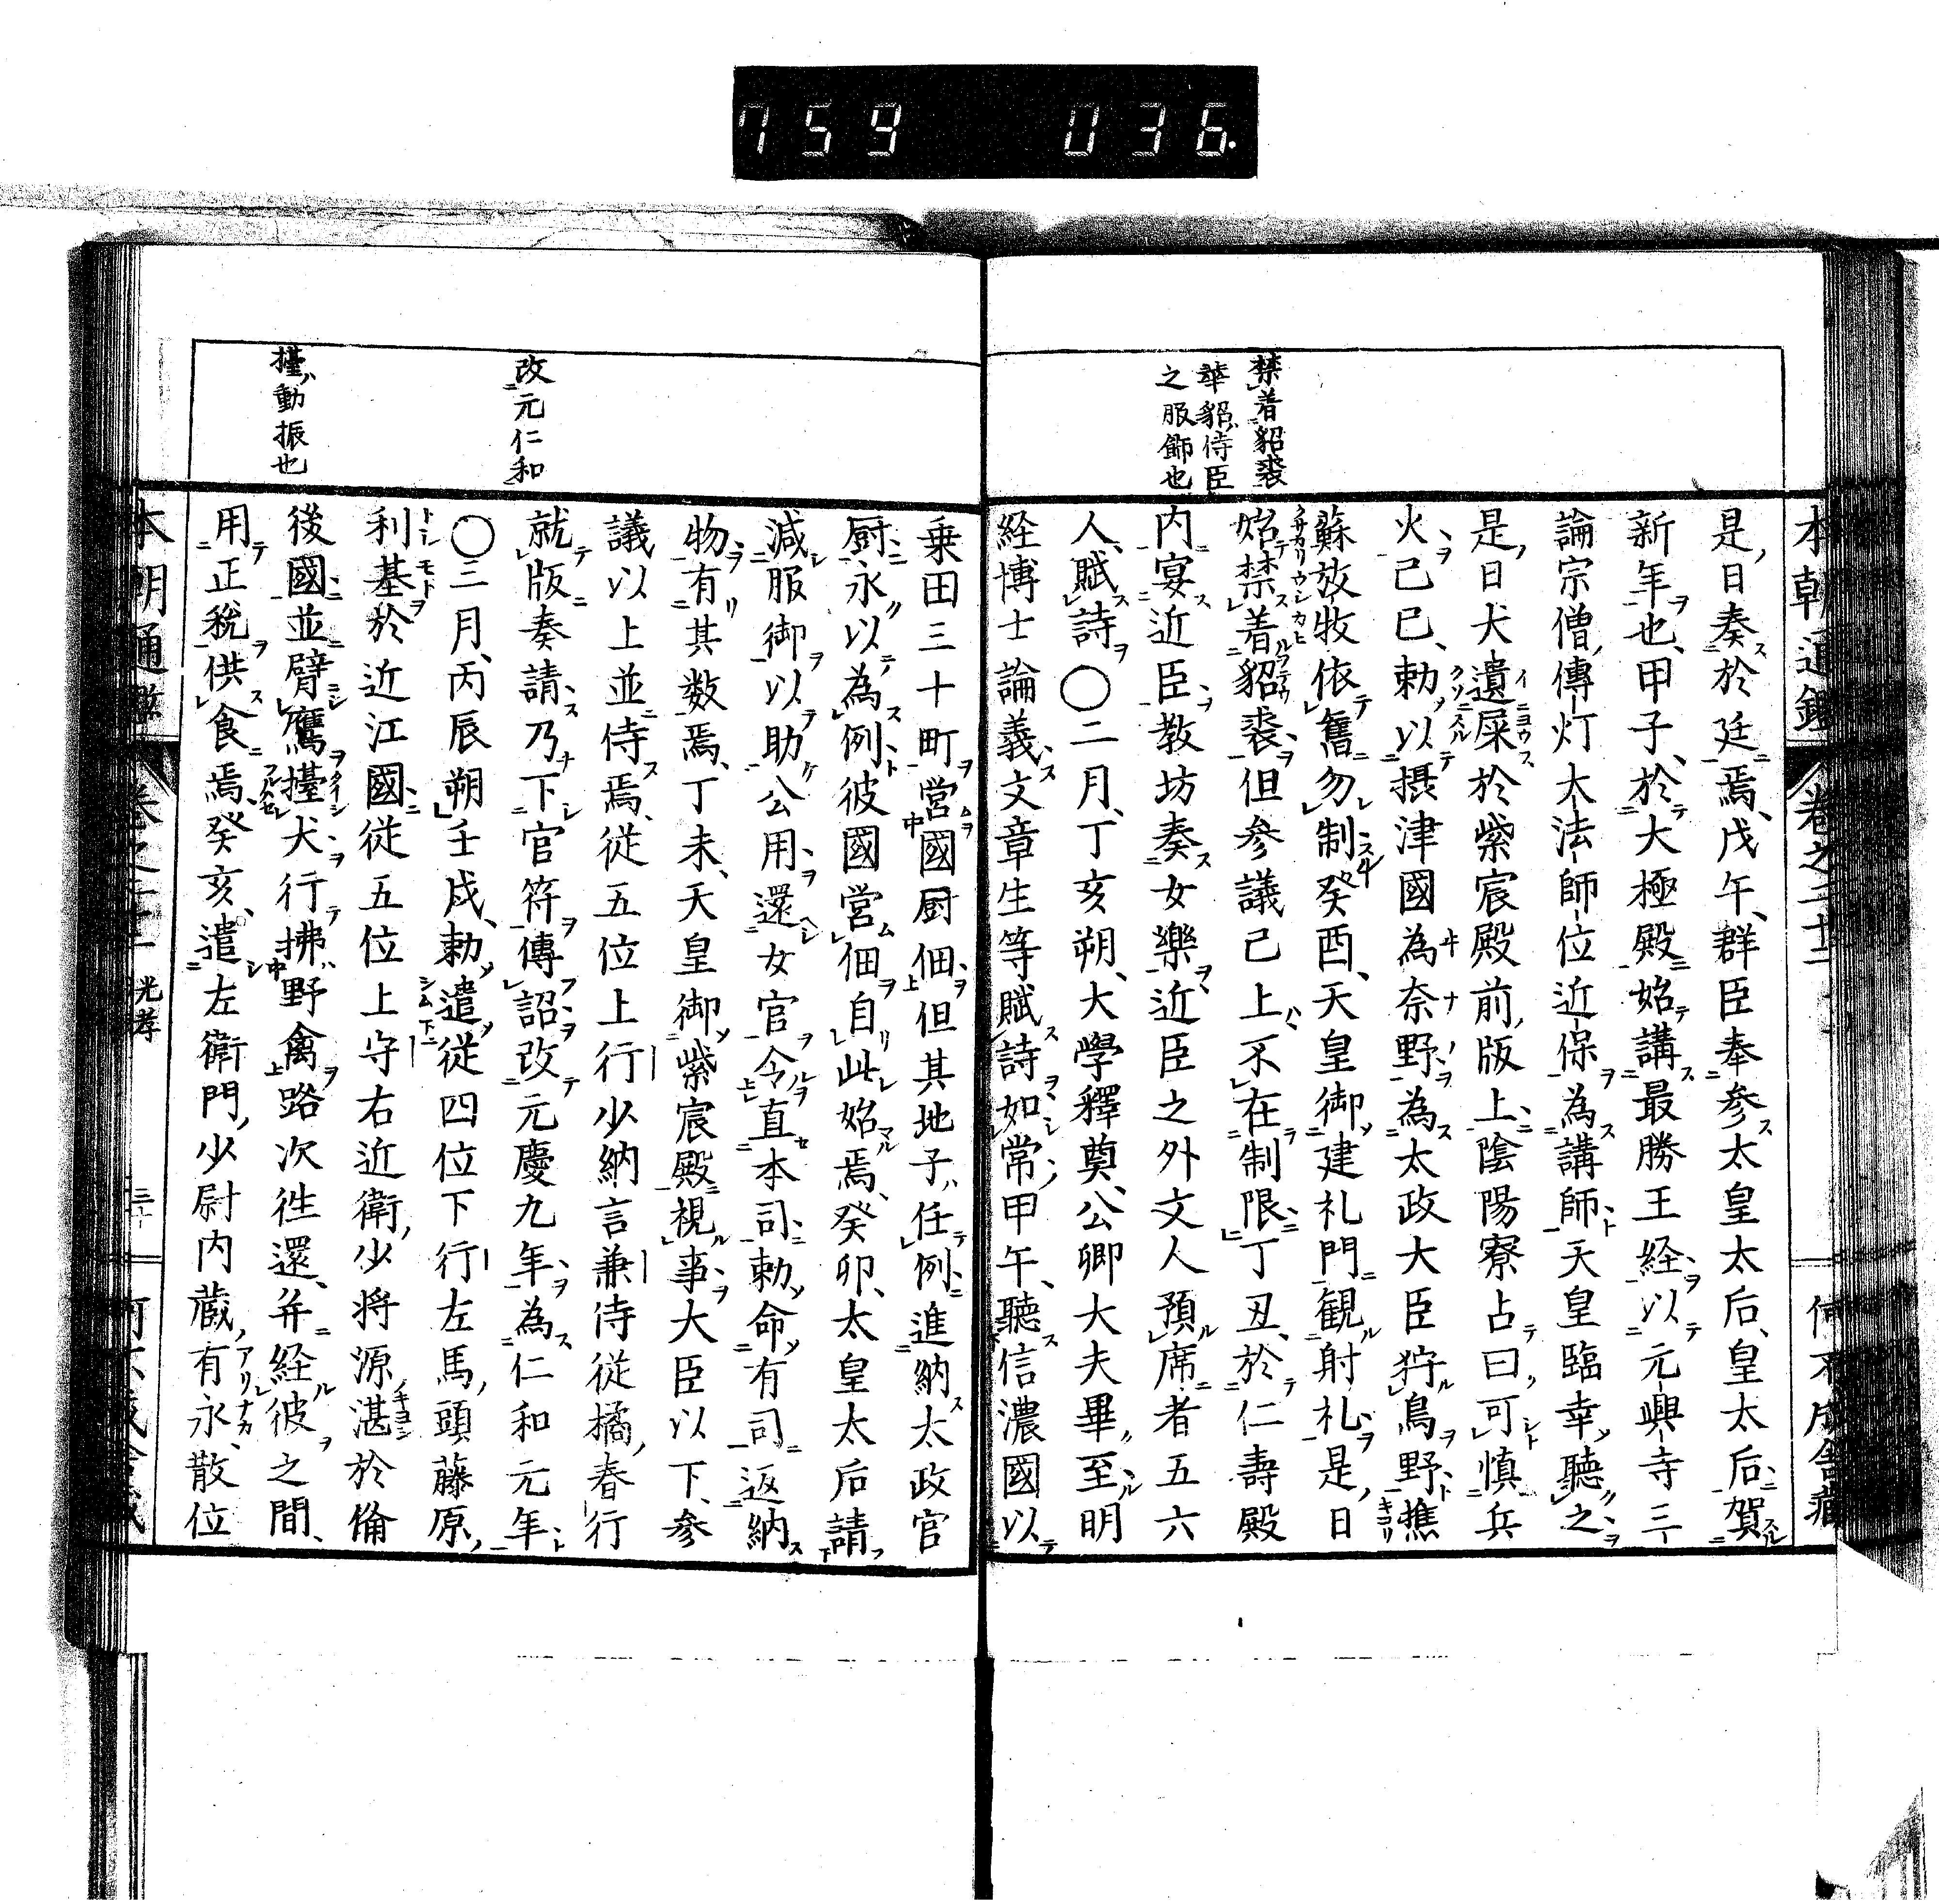 759 036.
本朝通鑑 卷之二十二 何不成舎蔵
禁着貂裘
華貂侍臣
之服飾也
是日奏於廷焉、戊午、群臣奉参太皇太后、皇太后賀
新年也、甲子、於大極殿始講最勝王経以元興寺三
論宗僧傳灯大法師位近保為講師天皇臨幸聽之
是日犬遺屎於紫宸殿前版上陰陽寮占曰可慎兵
火己巳、勅以摂津國為奈野為太政大臣狩鳥野樵
蘇放牧依舊勿制癸酉、天皇御建礼門観射礼是日
始禁着貂裘但参議已上不在制限丁丑、於仁壽殿
内宴近臣教坊奏女樂近臣之外文人預席者五六
人、賦詩〇二月、丁亥朔、大學釋奠、公卿大夫畢至明
経博士論義文章生等賦詩如常甲午、聽信濃國以
乗田三十町営國厨佃但其地子任例進納太政官
厨永以為例彼國営佃自此始焉、癸卯、太皇太后請
減服御以助公用還女官令直本司勅命有司返納
物有其数焉、丁未、天皇御紫宸殿視事大臣以下、参
議以上並侍焉、従五位上行少納言兼侍従橘春行
就版奏請乃下官符傳詔改元慶九年為仁和元年
〇三月、丙辰朔壬戌、勅遣従四位下行左馬頭藤原
利基於近江國従五位上守右近衛少将源湛於備
後國並臂鷹擡犬行拂野禽路次往還、并経彼之間、
用正税供食焉、癸亥、遣左衛門少尉内蔵有永散位
改元仁和
擡動振也
本朝通鑑 光孝 三十